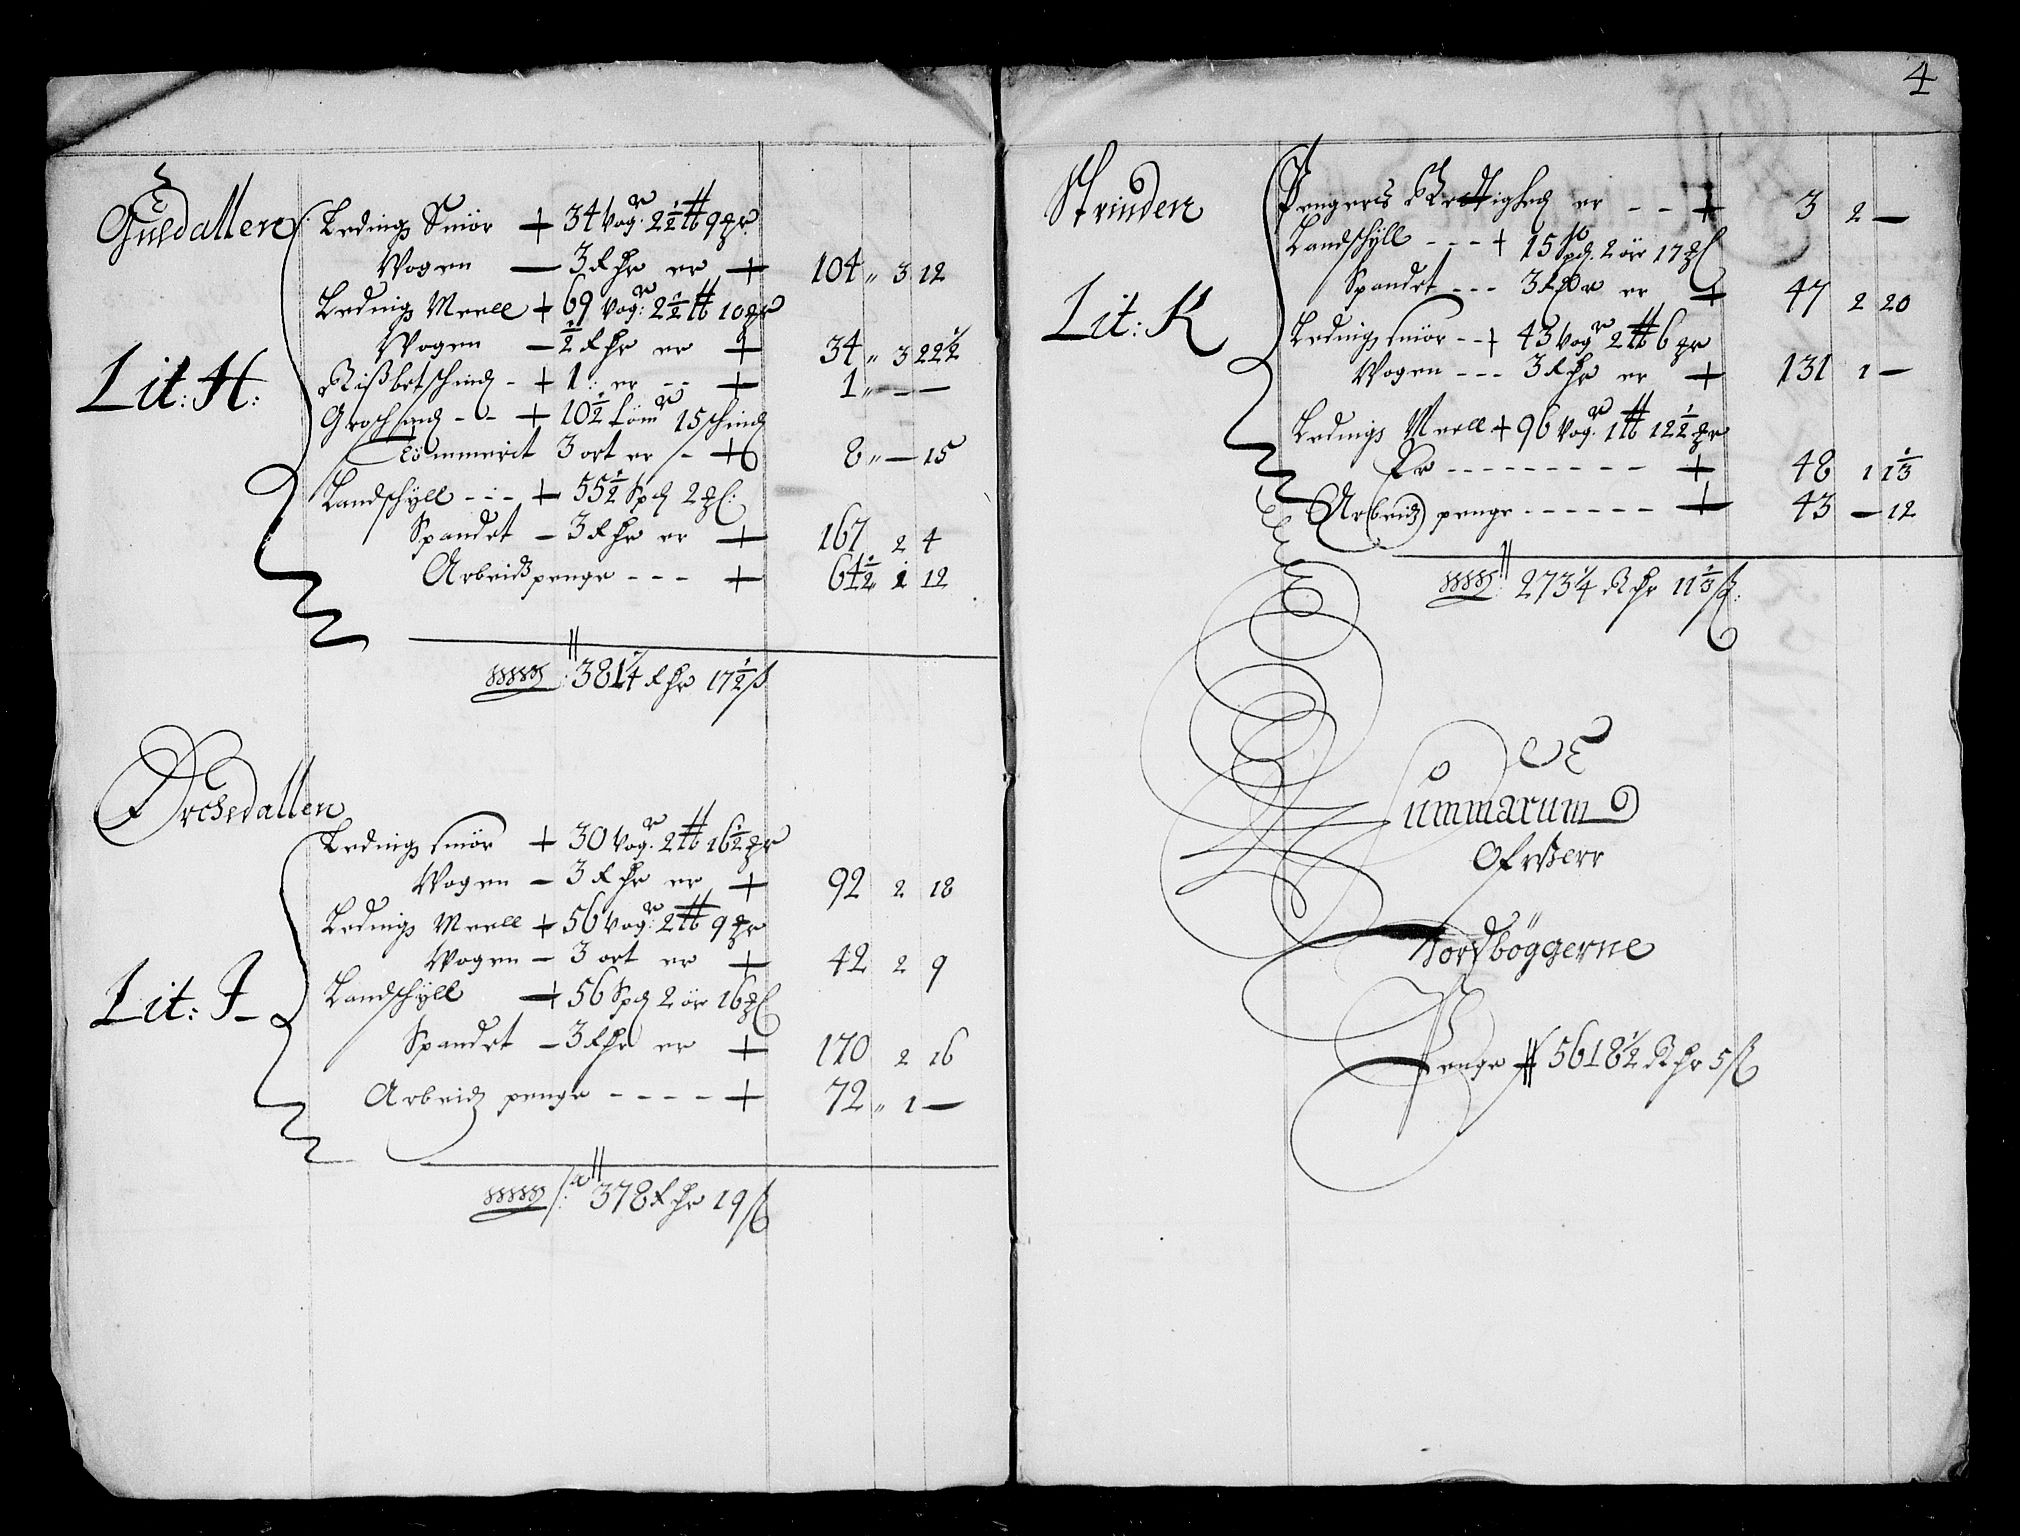 Guldallen
Lit: H:
Ledings Smör + 34 vogr 2½ ℔ 9 mr
Wogen — 3 Rdr er + 104 „ 3 12
Ledings Meell + 69 vogr: 2½ ℔ 10 mr
Wogen — ½ Rdr er + 34 „ 3 22½
schind - + 1: er - - + 1 „ — —
Grosschind - - + 10½ tömr 15 schind
Tömmerit 3 ort er - + 8 „ — 15
Landschyll - - - + 55½ Spd 2
Spandet — 3 Rdr er + 167 2 4
Arbeids penge - - - + 64½ 1 12
381¼ Rdr 17½ ß
Orchedallen
Lit: J
Ledings smör + 30 vogr. 2 ℔ 16½ mr
Wogen — 3 Rdr er + 92 2 18
Ledings Meell + 56 vogr: 2 ℔ 9 mr
Wogen — 3 ort er + 42 2 9
Landschyll + 56 Spd 2 ör 16
Spandet — 3 Rdr er + 170 2 16
Arbeids penge - - - - + 72 „ 1 —
378 Rdr 19 ß
4
Strinden
Lit: K
Rettighed er - - + 3 2 —
Landschyll - - - + 15 Spd. 2 ör 17
Spandet - - - 3 Rdr er + 47 2 20
Ledings smör - - + 43 vogr 2 ℔ 6 mr
Wogen - - - 3 Rdr er + 131 1 —
Ledings Meell + 96 vogr. 1 ℔ 12½ mr
Er - - - - - - - - - + 48 1 1⅓
Arbeids penge - - - - - - + 43 — 12
273¼ Rdr 11⅓ ß:
Summarum
Ofver
Nordböggerne
Penge 5618½ Rdr 5 ß